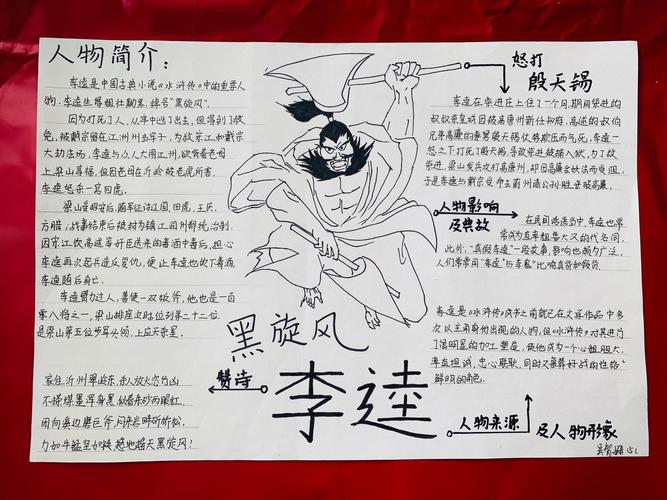 人物简介:
李逵是中国古典小说《水浒传》中的重要人
物,李逵生得粗壮黝黑,绰号"黑旋风"。
因为打死了人,从家中逃了出去,但得到了赦
免,被戴宗留在江州当牢子,为救宋江和戴宗
大劫法场,李逵与众人大闹江州,欲背着老母
上梁山享福,但因老母在沂岭被老虎所害,
李逵怒杀一窝四虎。
梁山受招安后,随军征讨辽国,田虎,王庆,
方腊;战事结束后被封为镇江润州都统治制,
因宋江饮高逵等奸臣送来的毒酒中毒后,担心
李逵再次起兵造反复仇,便让李逵也饮下毒酒,
李逵随后身亡。
李逵膂力过人,善使一双板斧,他也是一百
零八将之一,梁山排座次时位列第二十二位,
是梁山第五位步军头领,上应天杀星。
家住沂州翠岭东,杀人放火恣行凶
不搽煤墨浑身黑,似着朱砂两眼红
闲向溪边磨巨斧,闷来岩畔斫乔松,
力如牛猛坚如铁,撼地摇天黑旋风!
赞诗
黑旋风
李逵
怒打
殷天锡
李逵在柴进庄上住了一个月,期间柴进的
叔叔柴皇城因被高唐州新任知府、高逑的叔伯
兄弟高廉的妻舅殷天锡仗势欺压而气死,李逵一
怒之下打死了殷天锡,导致柴进被捕入狱,为了救
柴进,梁山发兵攻打高唐州,却因高廉会妖法而受阻,
于是李逵与戴宗受命去蓟州请公孙胜来破高廉。
人物影响
及典故
在民间谚语当中,李逵也常
常成为直率粗鲁大汉的代名词,
此外,"真假李逵"一段故事,影响也颇为广泛,
人们常常用"李逵"与"李鬼"比喻真货和假货。
李逵是《水浒传》成书之前就已在文学作品中多
次以主角身份出现的人物,但《水浒传》对其进行
了很明显的加工塑造,使他成为一个心粗胆大,
率直坦诚,忠心耿耿,同时又兼莽好战的性格
鲜明的角色。
人物来源
及人物形象